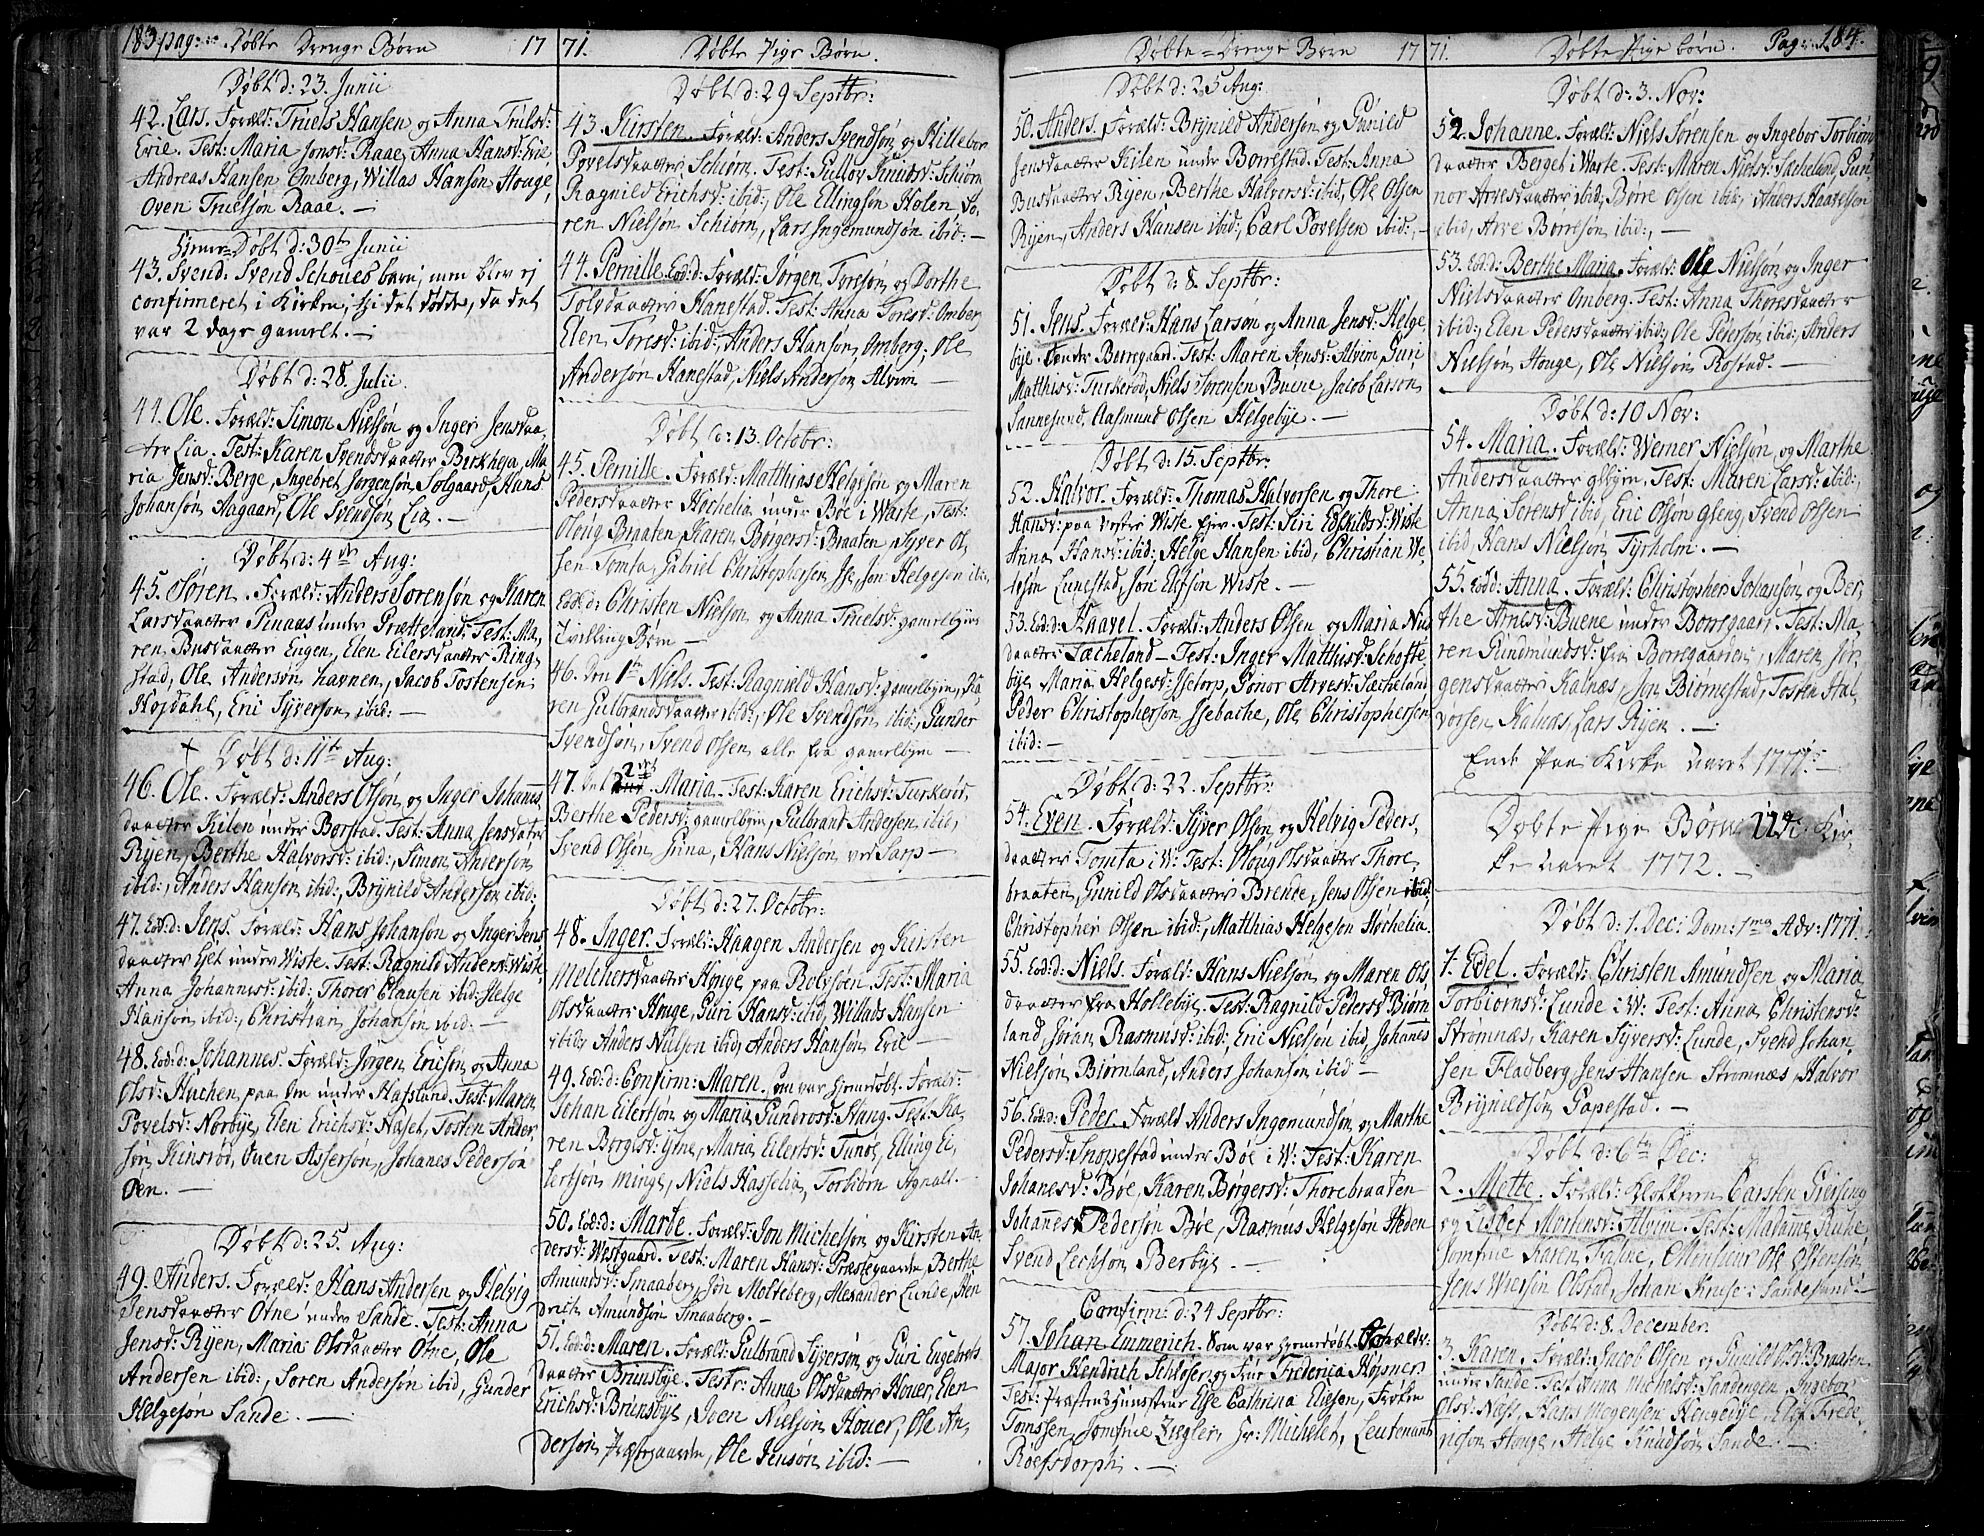 183 pag: Døbte Drenge Børn 17
Døbt d: 23. Junii
42. Lars. Foræld: Truels Hansen og Anna Trulsd:
Evie. Test: Maria Jonsd: Raae, Anna Hansd: Evie
Andreas Hansen Omberg, Willas Hansøn Houge,
Oven Truelsøn Raae. —
Hjemme-Døbt d: 30te Junii
43. Svend. Svend Schoues barn; men blev ej
confirmeret i Kirken, thi det døde, da det
var 2 dage gamelt. —
Døbt d: 28. Julii.
44. Ole. Foræld: Simon Nielsøn og Inger Jensdaa,
ter Lia. Test: Karen Svendsdaatter Birkheja, Ma
ria Jensd: Berge, Ingebret Jørgensøn Solgaard, Hans
Johansøn Aagaard, Ole Svendsøn Lia. —
Døbt d: 4de Aug:
45. Søren. Foræld: Anders Sørensøn og Karen
Larsdaatter Pinaas under Grætteland. Test: Ma,
ren Busdaatter Eugen, Elen Eilersdaatter Ring,
stad, Ole Andersøn havnen, Jacob Tostensen
Hojdahl, Eric Syversøn ibid: —
Døbt d: 11te Aug:
46. Ole. Foræld: Anders Olsøn og Inger Johanns,
daatter Kilen under Borstad. Test: Anna Jensdatter
Ryen, Berthe Halvorsd: ibid:, Simon Andersøn
ibid:, Anders Hansøn ibid:, Brynild Andersøn ibid:
47. Eod: d: Jens. Foræld: Hans Johansøn og Inger Jens,
daatter Het under Wiste. Test: Ragnild Andersd: Wiste,
Anna Johannesd: ibid: Thorer Clausen ibid: Helge
Hansøn ibid:, Christian Johansøn ibid. —
48. Eod: d: Johannes. Foræld: Jørgen Ericsøn og Anna
Olsd: Huchen, paa Oen under Hafslund. Test: Maren
Povelsd: Norbye, Elen Erichsd: Haset, Tosten Ander,
søn Kinsrød, Ouen Assersøn, Johanes Pedersøn
Oen. —
Døbt d: 25. Aug:
49. Anders. Foræld: Hans Andersen og Helvig
Jensdaatter Otne under Sande. Test: Anna
Jensd: Ryen, Maria Olsdaatter Otne, Ole
Andersen ibid:, Søren Andersøn ibid, Gunder
Helgesøn Sande. —
71. Døbte Pige Børn.
Døbt d: 29 Septbr:
43. Kirsten. Foræld: Anders Svendsøn og Hillebor
Povelsdaatter Schiørn. Test: Gullov Knudsd: Schiørn
Ragnild Erichsd: ibid:, Ole Ellingsøn Holen, Sø,
ren Nielsøn Schiørn, Lars Ingemundsøn ibid: —
44. Pernille. Eod: d: Foræld: Jørgen Toresøn og Dorthe
Tolvdaatter Hanestad. Test: Anna Toresd: Omberg
Elen Toresd: ibid:, Anders Hansøn Omberg, Ole
Andersøn Hanestad, Niels Andersøn Alvim —
Døbt d: 13. Octobr:
45. Pernille. Foræld: Matthias Helgesøn og Maren
Pedersdaatter Høchelia under Bøe i Warte, Test:
Oloug Braaten, Karen Børgersd: Braaten, Syver Ol
sen Tomta, Gabriel Christophersen, Jon Helgesøn ibid:,
Eod: d: Christen Nielsøn og Anna Trulsd: gamelbyns
Tvilling Børn —
46. Den 1te Niels. Test: Ragnild Hansd: gamelbyen, Ka
ren Gulbrandsdaatter ibid:, Ole Svendsøn ibid:, Gunder
Svendsøn, Svend Olsen alle fra gamelbyen —
47. Det 2det. Maria. Test: Karen Erichsd: Turkerød,
Berthe Pedersd: gamelbyen, Gulbrand Andersen ibid:,
Svend Olsen Juna, Hans Nielsøn ved Sarp —
Døbt d: 27. Octobr:
48. Inger. Foræld: Haagen Andersen og Kirsten
Melchersdaatter Houge, paa Rolvsøen, Test: Maria
Olsdaatter Houge, Guri Hansd: ibid, Willads Hansen
ibid, Anders Nielson ibid, Anders Hansøn Evie —
49. Eod: d: Confirm: Maren, som var hjemdøbt. Foræld:
Johan Eilertsøn og Maria Gundrosd: Haug. Test: Ka,
ren Borgisd: Ytne, Maria Eilertsd: Tunøe, Elling Ei,
lertsøn Minge, Niels Hasselia, Torbiørn Agnalt. —
50. Eod: d: Marte. Foræld: Jon Michelsøn og Kirsten An
dersd: Westgaard. Test: Maren Hansd: Præstegaarden, Berthe
Amundsd: Smaaberg, Jon Molteberg, Alexander Lunde, Hen
drich Amundsøn Smaaberg. —
51. Eod: d: Maren. Foræld: Gulbrand Syversøn og Guri Engebrets
daatter Brunsbye. Test: Anna Olsdaatter Houer, Elen
Erichsd: Brunsbye, Joen Nielsøn Houer, Ole An,
dersøn Præstgaarden, Ole Jensøn ibid: —
Døbte Drenge Børn 17
Døbt d: 25 Aug:
50. Anders. Foræld: Brynild Andersøn og Gunild
Jensdaatter Kilen under Borrestad. Test: Anna
Busdaatter Ryen, Berthe Halvorsd: ibid, Ole Olsen
Ryen, Anders Hansen ibid:, Carl Povelsen ibid:, —
Døbt d: 8. Septbr:
51. Jens. Foræld: Hans Larsøn og Anna Jensd: Helge
bye under Borregaard. Test: Maren Jensd: Alvim, Guri
Matthisd: Turkerød, Niels Sørensen Buene, Jacob Larsøn
Sannesund, Aasmund Olsen Helgebye. —
Døbt d: 15. Septbr:
52. Halvor. Foræld: Thomas Halvorsen og Thore
Hansd: paa vester Wiste Ejer. Test: Siri Edskildsd: Wiste
Anna Hansd: ibid:, Helge Hansen ibid, Christian We
tesøn Lunestad, Jon Elefsøn Wiste. —
53. Eod: d: Haavel. Foræld: Anders Olsen og Maria Niels
daatter Sæcheland — Test: Inger Matthisd: Schofte
bye, Maria Helgesd: Isetorp, Gonor Arvesd: Sæcheland
Peder Christophersøn Isebache, Ole Christophersen
ibid: —
Døbt d: 22. Septbr:
54. Even. Foræld: Syver Olsøn og Helvig Peders,
daatter Tomta i W: Test: Oloug Olsdaatter Thore
braaten, Gunild Olsdaatter Brende, Jens Olsen ibid
Christopher Olsen ibid:, Matthias Helgesøn Høchelia.
55. Eod: d: Niels. Foræld: Hans Nielsøn og Maren Ols
daatter fra Hollebye. Test: Ragnild Pedersd Biørn
land, Jøran Rasmusd: ibid:, Eric Nielsøn ibid, Johanes
Nielsøn Biørnland, Anders Johansøn ibid —
56. Eod: d: Peder. Foræld Anders Ingomundsøn og Marthe
Pedersd: Snopestad under Bøe i W: Test: Karen
Johanesd: Bøe, Karen Borgersd: Thorebraaten
Johannes Pedersøn Bøe, Rasmus Helgesøn Heden
Svend Lechsøn Berbye. —
Confirm: d: 24 Septbr:
57. Johan Emmerich. Som var hjemedøbt. Forældr:
Major Hendrich Schlöser og Frue Frederica Höpner
Test: Præstens Frue Else Cathrina Eliesøn, Frøken
Tomssen, Jomfrue Ziegler, Hr: Michelet, Leutenant
Roefsdorph. —
71. Døbte Pige børn. Pag: 184.
Døbt d: 3. Nov:
52. Johanne. Foræld: Niels Sørensen og Ingebor Torbiørns
daatter Berget i Warte. Test: Maren Nielsd: Sacheland, Gun,
nor Arvesdaatter ibid, Børre Olsen ibid, Anders Haavelsen
ibid, Arve Børresøn ibid:, —
53. Eod: d: Berthe Maria. Foræld: Ole Nielsøn og Inger
Nielsdaatter Omberg. Test: Anna Thoresdaatter
ibid:, Elen Pedersdaatter ibid:, Ole Pedersøn ibid:, Anders
Nielsøn Houge, Ole Nielsøn Rostad. —
Døbt d: 10 Nov:
54. Maria. Foræld: Werner Nielsøn og Marthe
Andersdaatter Glbyen. Test: Maren Larsd: ibid:,
Anna Sørensd ibid, Eric Olsøn Gleng, Svend Olsen
ibid, Hans Nielsøn Tyrholm. —
55. Eod: d: Anna. Foræld: Christopher Johansøn og Ber,
the Arnesd: Buene under Borregaard, Test: Ma
ren Gundmundsd: fra Borregaarden, Maren Jør,
gensdaatter Kalnæs, Jon Biørnestad, Tosten Hal,
vorsen Kalnæs, Lars Ryen. —
Ende paa Kirke Aaret 1771. —
Døbte Pige Børn udi Kir,
ke Aaret 1772. —
Døbt d: 1. Dec: Dom: 1ma Adv: 1771.
1. Edel. Foræld: Christen Amundsen og Maria
Torbiørnsd: Lunde i W: Test: Anna Christensd:
Strømnæs, Karen Syversd: Lunde, Svend Johan,
sen Fladberg, Jens Hansen Strømnæs, Halvor
Brynildsøn Gapestad. —
Døbt d: 6te Dec:
2. Mette. Foræld: Klokkeren Carsten Giersing
og Lisbet Mortensd: Alvim. Test: Madame Ruhe,
Jomfrue Karen Tastue, Monsieur Ole Ostensøn,
Jens Wiersøn Olstad, Johan Kruse i Sandesund. —
Døbt d: 8. December.
3. Karen. Foræld: Jacob Olsen og Gunild Olsd: Braaten
under Sande. Test: Anna Michelsd: Sandengen, Ingebor
Olsd: Næss, Hans Mogensen Hengedye, Elef Frede,
ricsøn Houge, Helge Knudsøn Sande. —